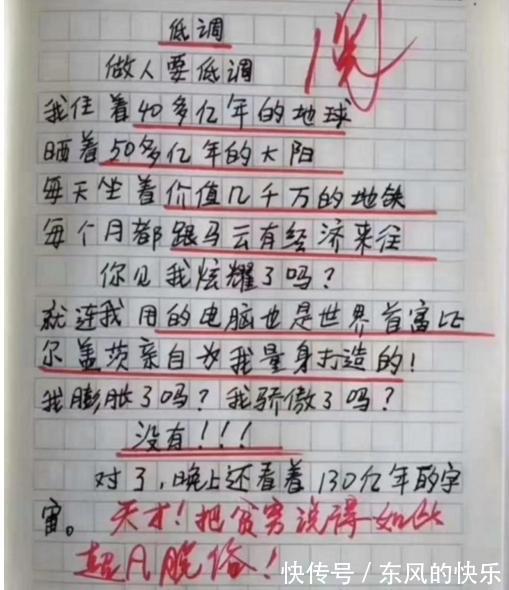 低调
做人要低调
我住着40多亿年的地球
晒着50多亿年的太阳
每天坐着价值几千万的地铁
每个月都跟马云有经济来往
你见我炫耀了吗?
就连我用的电脑也是世界首富比
尔盖茨亲自为我量身打造的!
我膨胀了吗?我骄傲了吗?
没有!!!
对了,晚上还看着130亿年的宇
宙。天才!把贫穷说得如此
超凡脱俗!
快传号/东风的快乐